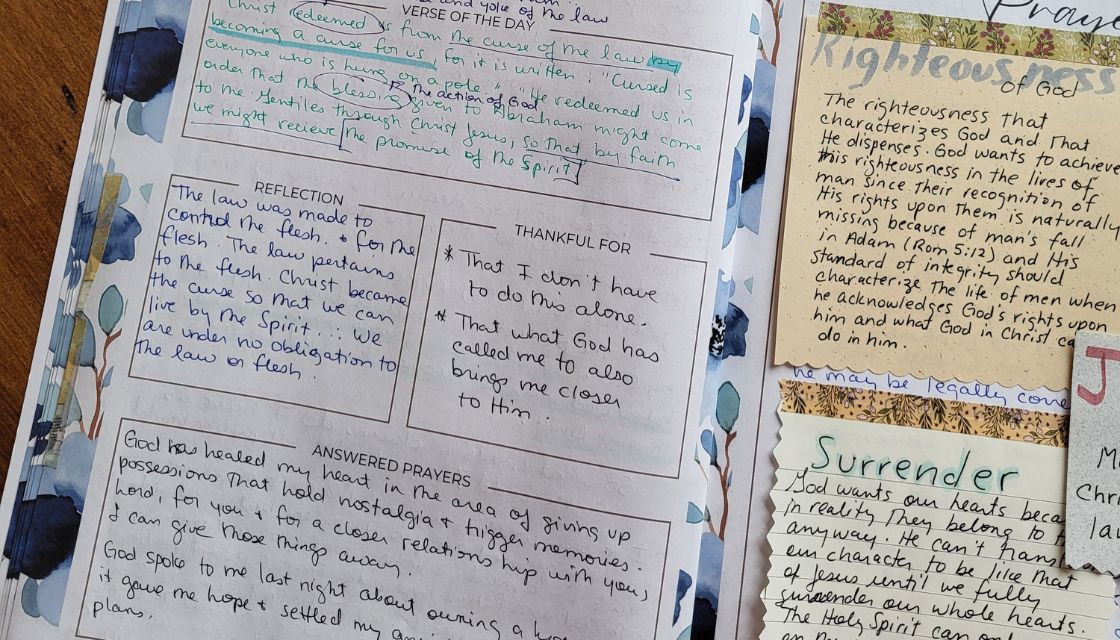 and yoke of the law
VERSE OF THE DAY
Christ redeemed us from the curse of the law by
becoming a curse for us, for it is written: "Cursed is
everyone who is hung on a pole." "He redeemed us in
The action of God
order that the blessing given to Abraham might come
to the Gentiles through Christ Jesus, so that by faith
we might recieve the promise of the Spirit
REFLECTION
The law was made to
control the flesh. & for the
flesh. The law pertains
to the flesh. Christ became
the curse so that we can
live by the Spirit... We
are under no obligation to
the law or flesh.
THANKFUL FOR
* That I don't have
to do this alone.
* That what God has
called me to also
brings me closer
to Him.
ANSWERED PRAYERS
God has healed my heart in the area of giving up
possessions that hold nostalgia & trigger memories.
Lord, for you & for a closer relationship with you,
I can give those things away.
God spoke to me last night about owning a
it gave me hope & settled my
plans.
Righteousness
of God
The righteousness that
characterizes God and That
He dispenses. God wants to achieve
this righteousness in the lives of
man since their recognition of
His rights upon Them is naturally
missing because of man's fall
in Adam (Rom 5:12) and His
standard of integrity should
characterize the life of men when
he acknowledges God's rights upon
him and what God in Christ ca
do in him.
he may be legally
Surrender
God wants our hearts beca
in reality They belong to
anyway. He can't trans
our character to be like that
of Jesus until we fully
surrender our whole hearts.
The Holy Spirit can
J
M
Chr
la